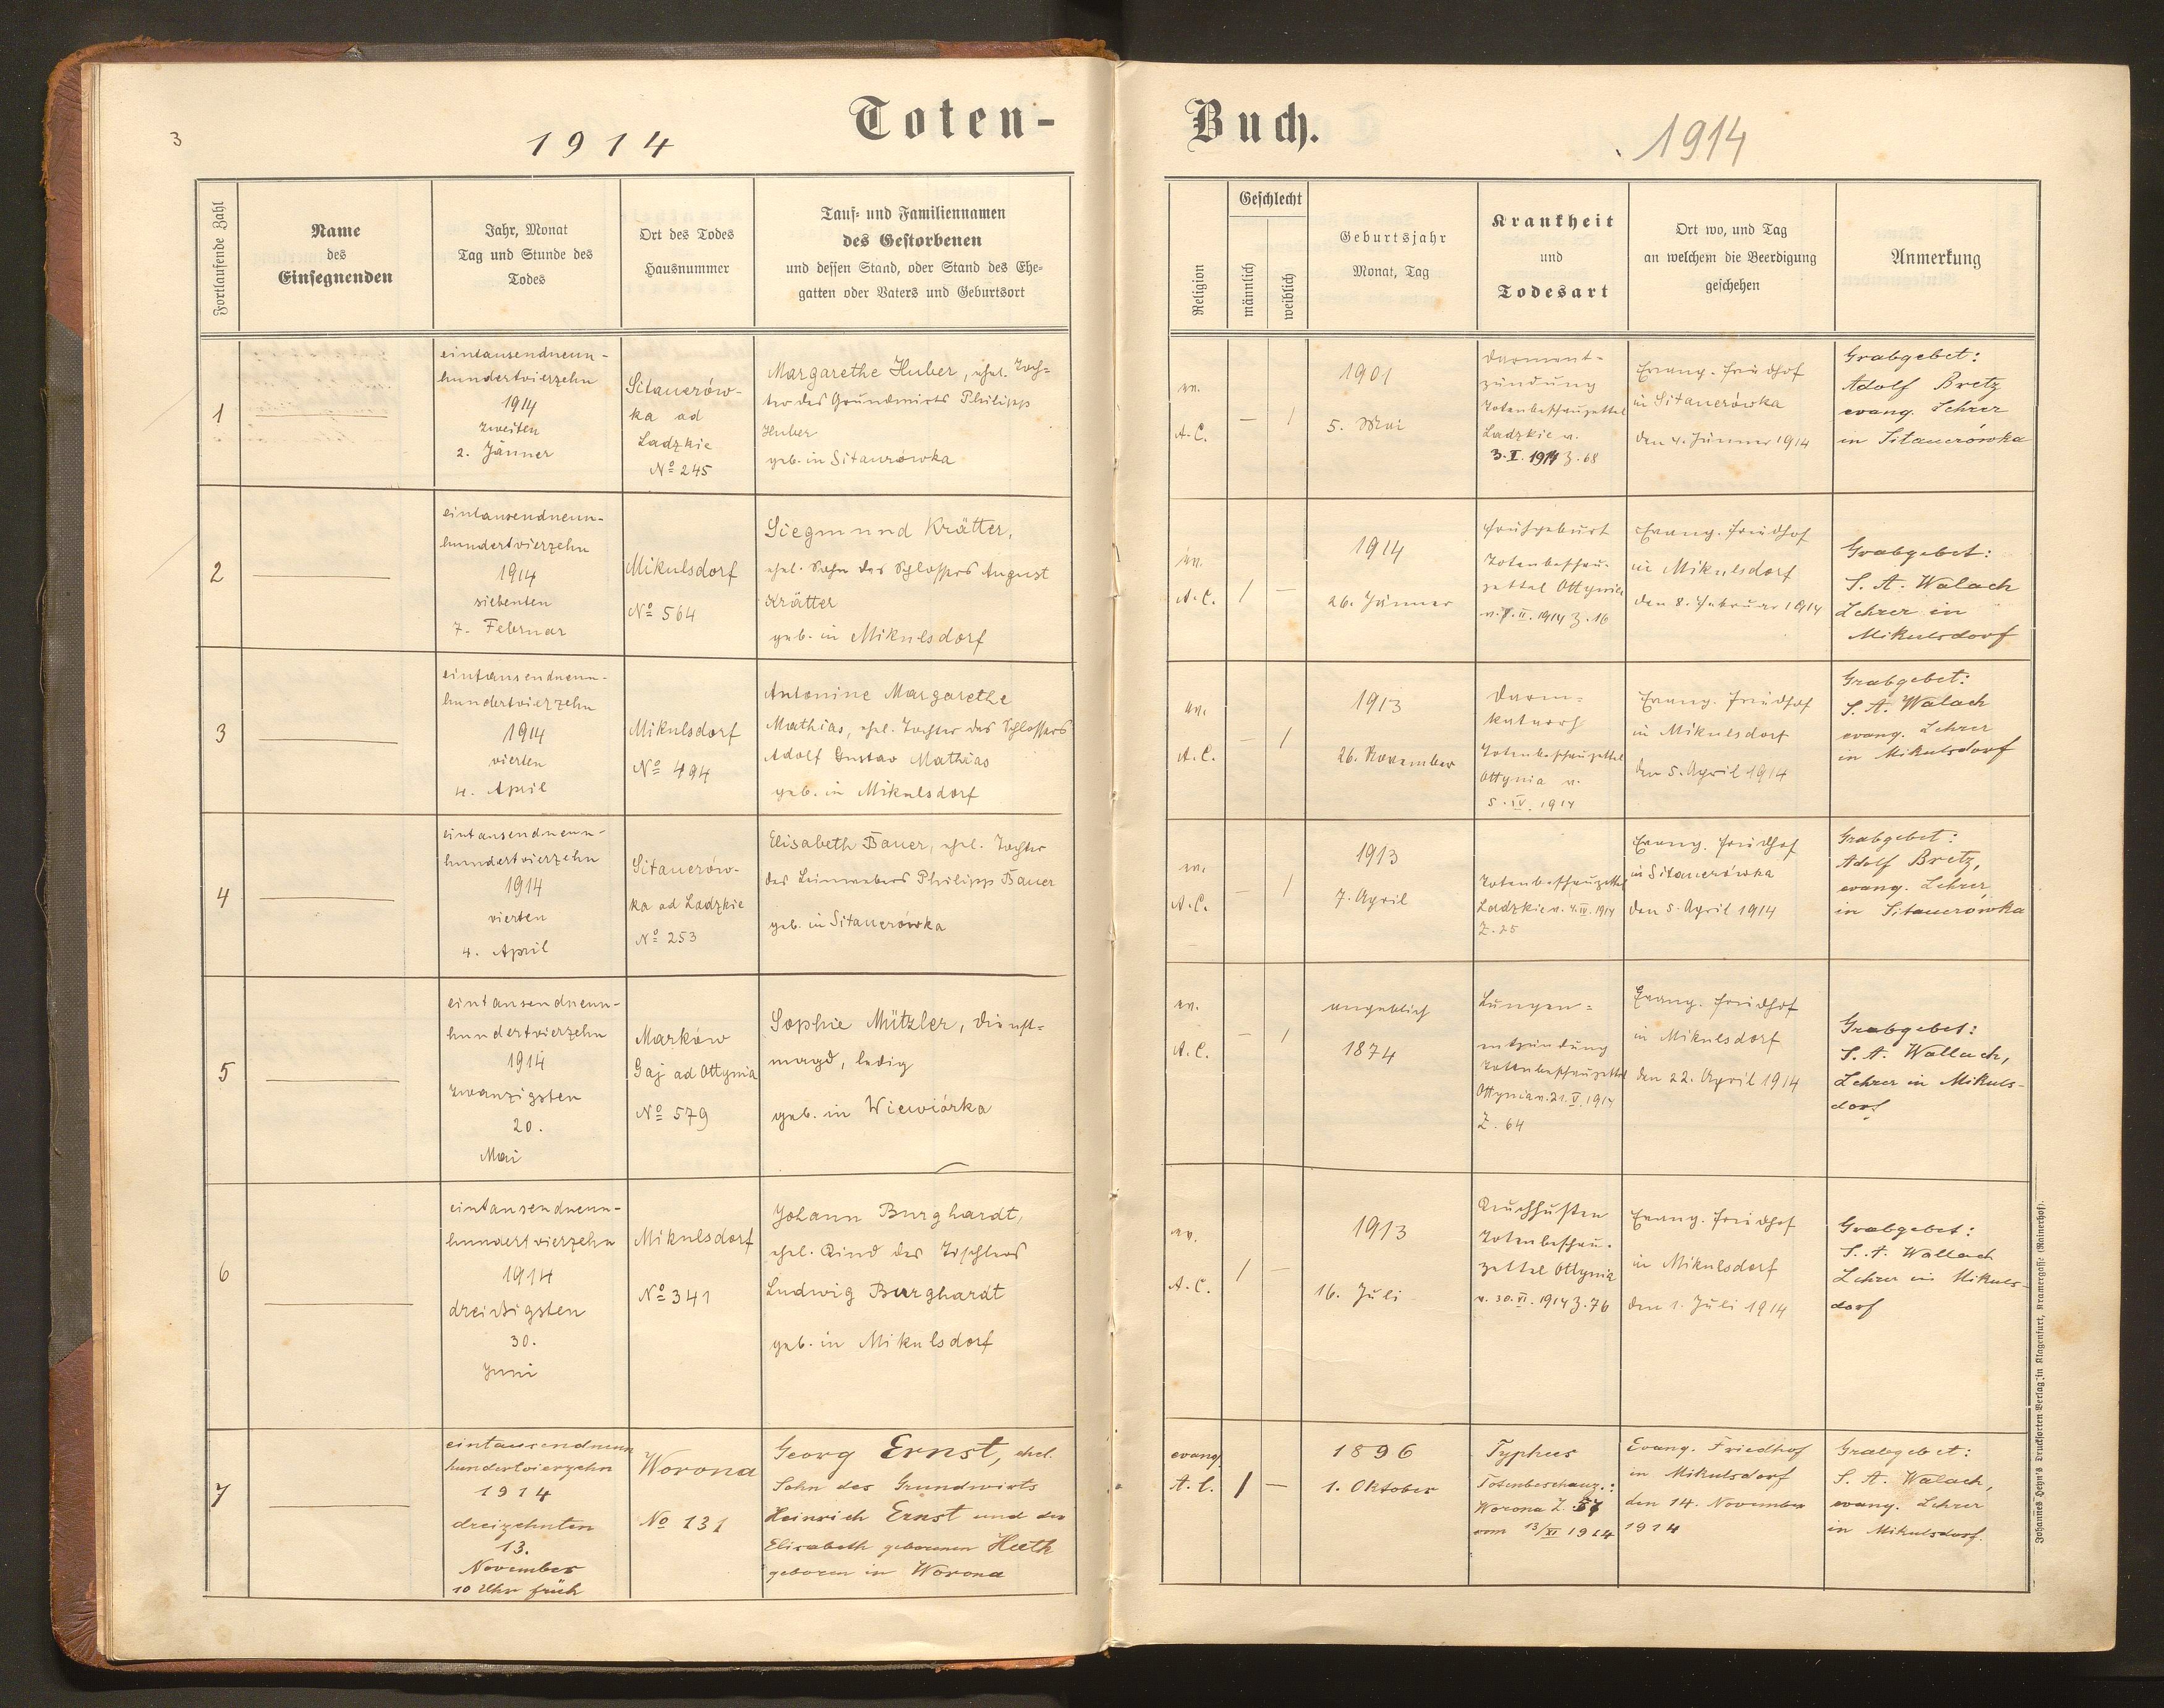 3
1914
Toten-
Fortlaufende Zahl
Name
des
Einsegnenden
Jahr, Monat
Tag und Stunde des
Todes
Ort des Todes
Hausnummer
Tauf- und Familiennamen
des Gestorbenen
und dessen Stand, oder Stand des Ehe-
gatten oder Vaters und Geburtsort
1
eintausendneun-
hundertvierzehn
1914
zweiten
2. Jänner
Sitauerów-
ka ad
Ladzkie
No 245
Margarethe Huber, ehel. Toch-
ter des Grundwirts Philipp
Huber
geb. in Sitaurowka
2
eintausendneun-
hundertvierzehn
1914
siebenten
7. Februar
Mikulsdorf
No 564
Siegmund Krätter,
ehel. Sohn des Schlossers August
Krätter
geb. in Mikulsdorf
3
eintausendneun-
hundertvierzehn
1914
vierten
4. April
Mikulsdorf
No 494
Antonine Margarethe
Mathias, ehel. Tochter des Schlossers
Adolf Gustav Mathias
geb. in Mikulsdorf
4
eintausendneun-
hundertvierzehn
1914
vierten
4. April
Sitauerów-
ka ad Ladzkie
No 253
Elisabeth Bauer, ehel. Tochter
des Leinwebers Philipp Bauer
geb. in Sitauerówka
5
eintausendneun-
hundertvierzehn
1914
zwanzigsten
20.
Mai
Marków
Gaj ad Ottynia
No 579
Sophie Mützler, Dienst-
magd, ledig
geb. in Wiewiórka
6
eintausendneun-
hundertvierzehn
1914
dreißigsten
30.
Juni
Mikulsdorf
No 341
Johann Burghardt,
ehel. Kind des Tischlers
Ludwig Burghardt
geb. in Mikulsdorf
7
eintausendneun
hundertvierzehn
1914
dreizehnten
13.
November
10 Uhr früh
Worona
No 131
Georg Ernst, ehel.
Sohn des Grundwirts
Heinrich Ernst und der
Elisabeth geborenen Huth
geboren in Worona
Buch.
1914
Religion
Geschlecht
männlich
weiblich
Geburtsjahr
Monat, Tag
Krankheit
und
Todesart
Ort wo, und Tag
an welchem die Beerdigung
geschehen
Anmerkung
ev.
A.C.
— 1
1901
5. Mai
Darment-
zündung
Totenbeschauzettel
Ladzkie v.
3.I.1914 Z.68
Evang. Friedhof
in Sitauerówka
den 4. Jänner 1914
Grabgebet:
Adolf Bretz
evang. Lehrer
in Sitauerówka
ev.
A.C.
1 —
1914
26. Jänner
Frühgeburt
Totenbeschau-
zettel Ottynia
II. 1914 Z. 16
Evang. Friedhof
in Mikulsdorf
den 8. Februar 1914
Grabgebet:
S. A. Walach
Lehrer in
Mikulsdorf
ev.
A.C.
— 1
1913
26. November
Darm-
katarrh
Totenbeschauzettel
Ottynia v.
5. IV. 1914
Evang. Friedhof
in Mikulsdorf
den 5. April 1914
Grabgebet:
S. A. Walach
evang. Lehrer
in Mikulsdorf
ev.
A.C.
— 1
1913
7. April
Totenbeschauzettel
Ladzkie v. 4.IV.1914
Z. 25
Evang. Friedhof
in Sitauerówka
den 5. April 1914
Grabgebet:
Adolf Bretz,
evang. Lehrer
in Sitauerówka
ev.
A.C.
— 1
angeblich
1874
Lungen-
entzündung
Totenbeschauzettel
Ottynia v. 21.V.1914
Z. 64
Evang. Friedhof
in Mikulsdorf
den 22. April 1914
Grabgebet:
S. A. Wallach,
Lehrer in Mikuls-
dorf
ev.
A.C.
1 —
1913
16. Juli
Keuchhusten
Totenbeschau-
zettel Ottynia
v. 30.VI.1914 Z.76
Evang. Friedhof
in Mikulsdorf
den 1. Juli 1914
Grabgebet:
S. A. Wallach
Lehrer in Mikuls-
dorf
evang.
A. C.
1 —
1896
1. Oktober
Typhus
Totenbeschauz.:
Worona Z. 57
vom 13/XI 1914
Evang. Friedhof
in Mikulsdorf
den 14. November
1914
Grabgebet:
S. A. Walach,
evang. Lehrer
in Mikulsdorf.
Johannes Heyn's Drucksorten-Verlag in Klagenfurt, Kramergasse (Rainerhof).